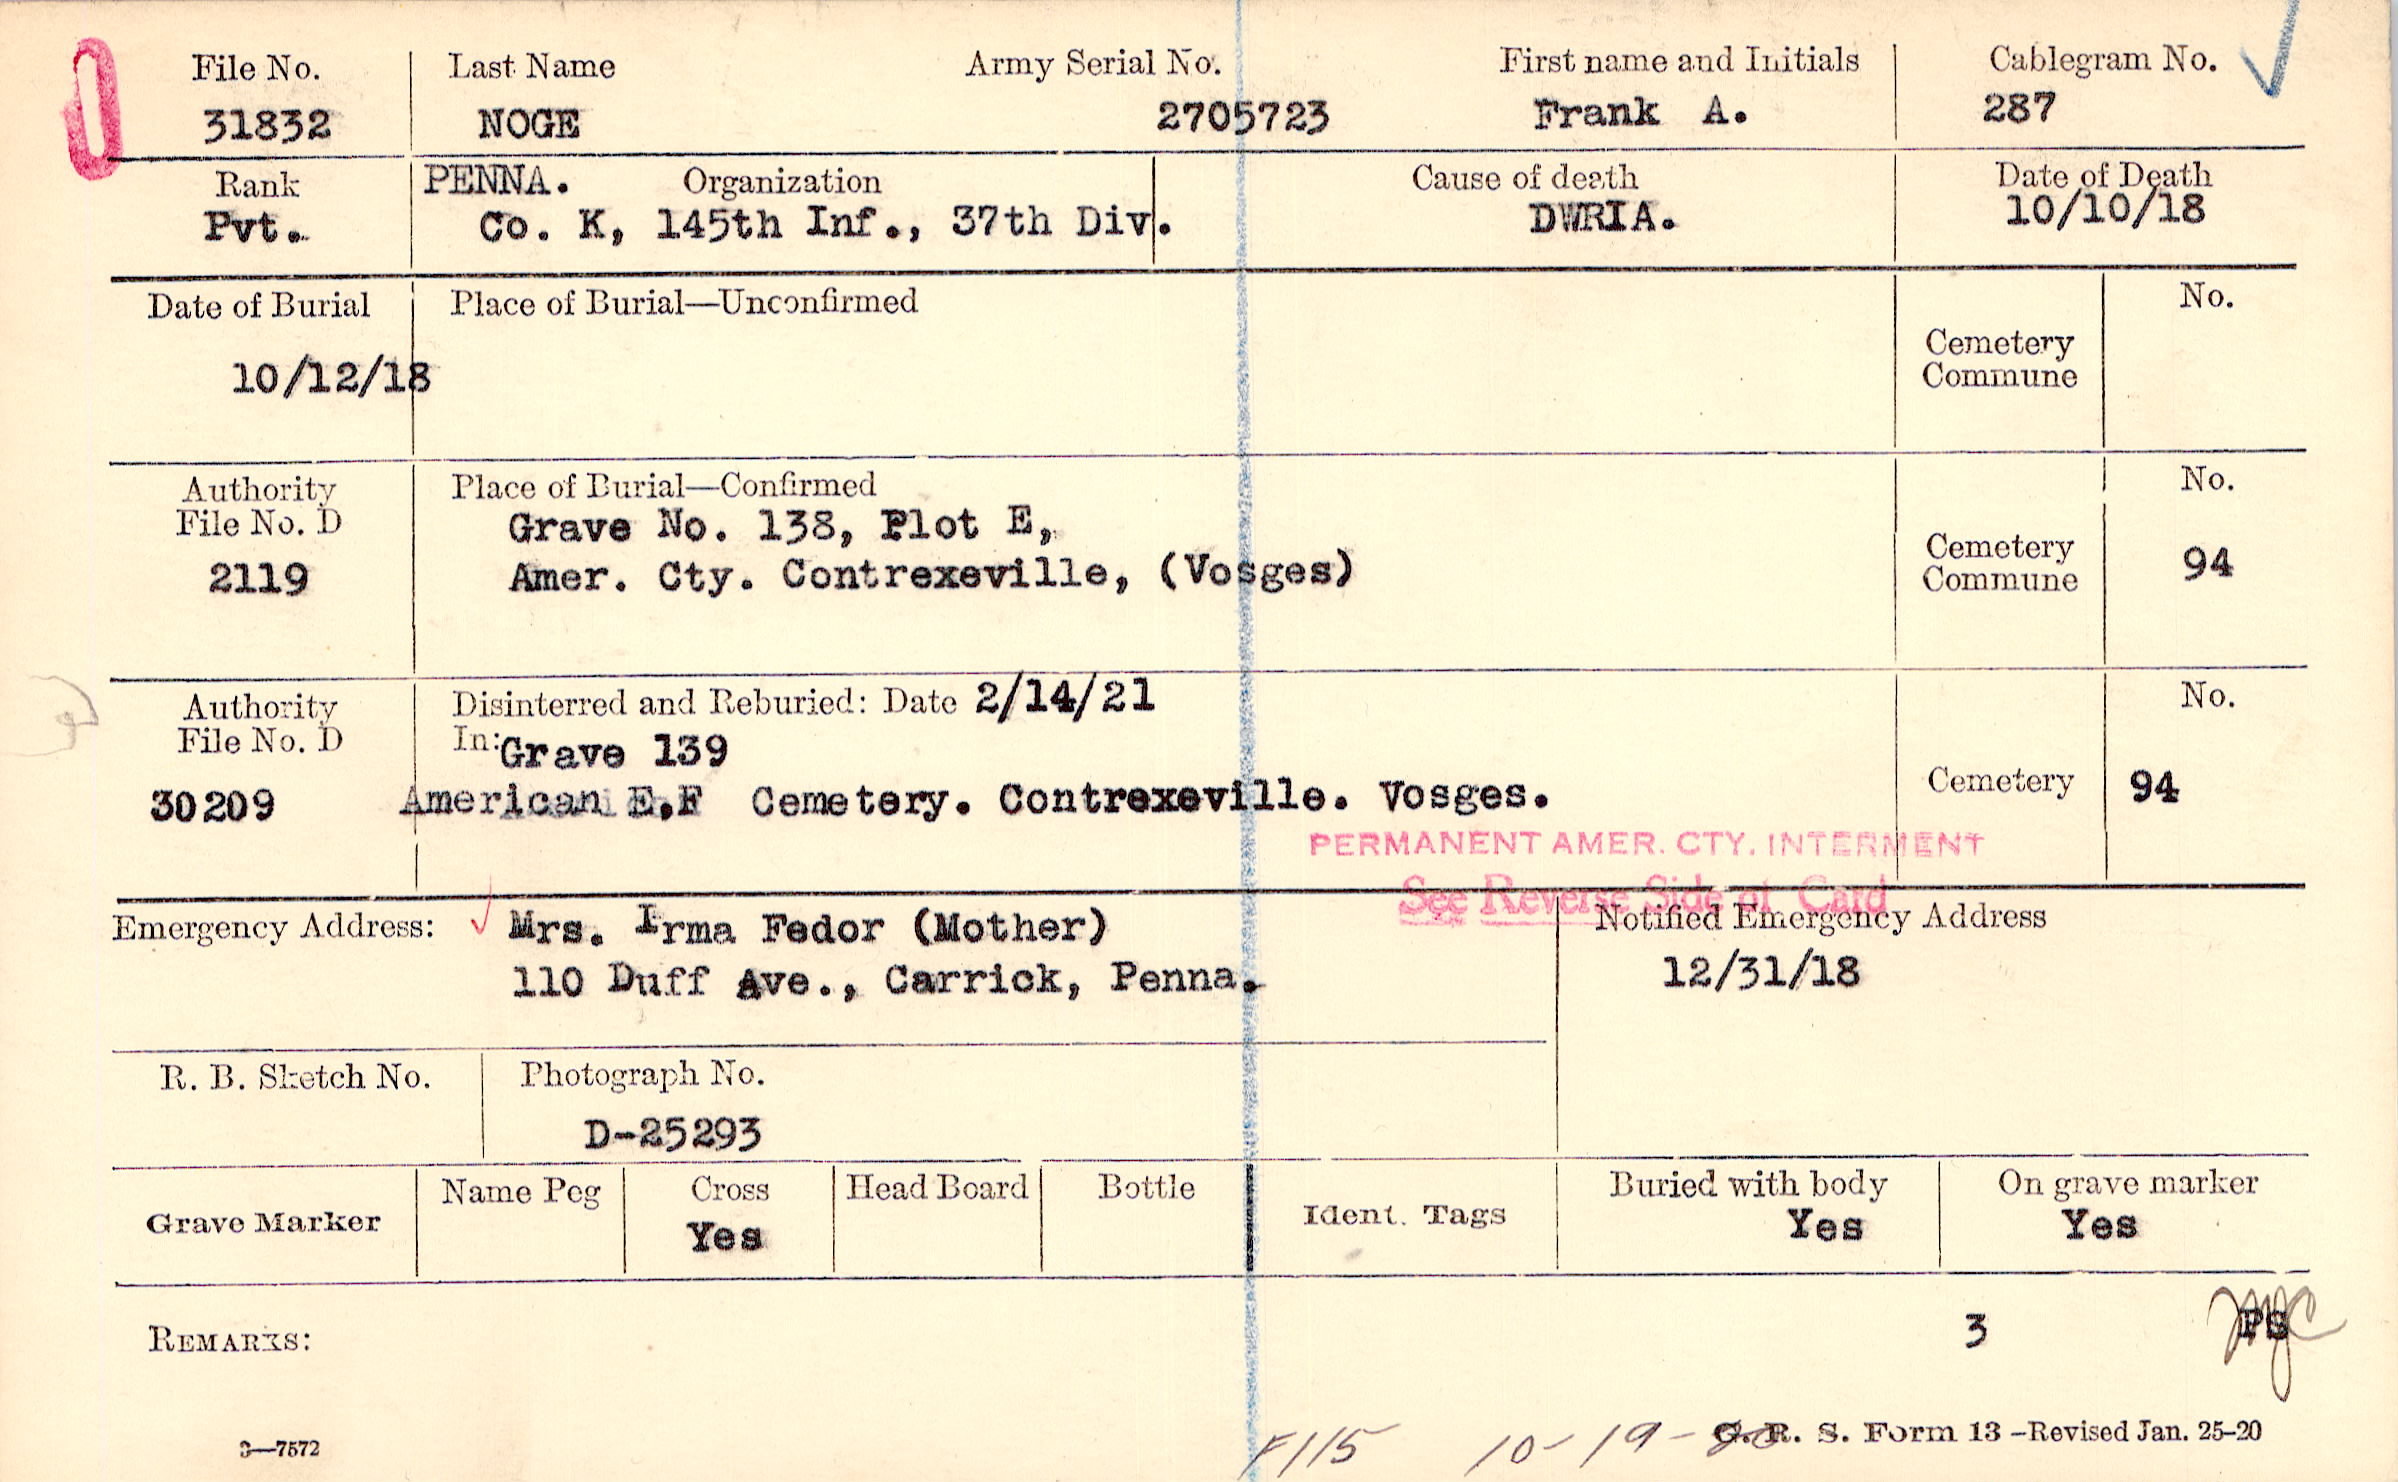 File No. Last Name Army Serial No. First name and Initials Cablegram No.
31832 NOGE 2705723 Frank A. 287
Rank PENNA. Organization Cause of death Date of Death
Pvt. Co. K, 145th Inf., 37th Div. DWRIA. 10/10/18
Date of Burial Place of Burial—Unconfirmed No.
10/12/18 Cemetery
Commune
Authority Place of Burial—Confirmed No.
File No. D Grave No. 138, Plot E, Cemetery
2119 Amer. Cty. Contrexeville, (Vosges) Commune 94
Authority Disinterred and Reburied: Date 2/14/21 No.
File No. D In: Grave 139
30209 American E.F Cemetery. Contrexeville. Vosges. Cemetery 94
PERMANENT AMER. CTY. INTERMENT
See Reverse Side of Card
Emergency Address: Mrs. Irma Fedor (Mother) Notified Emergency Address
110 Duff Ave., Carrick, Penna. 12/31/18
R. B. Sketch No. Photograph No.
D-25293
Grave Marker Name Peg Cross Head Board Bottle Ident. Tags Buried with body On grave marker
Yes Yes Yes
REMARKS: 3 PS
3—7572 F115 10-19- G. R. S. Form 13 -Revised Jan. 25-20